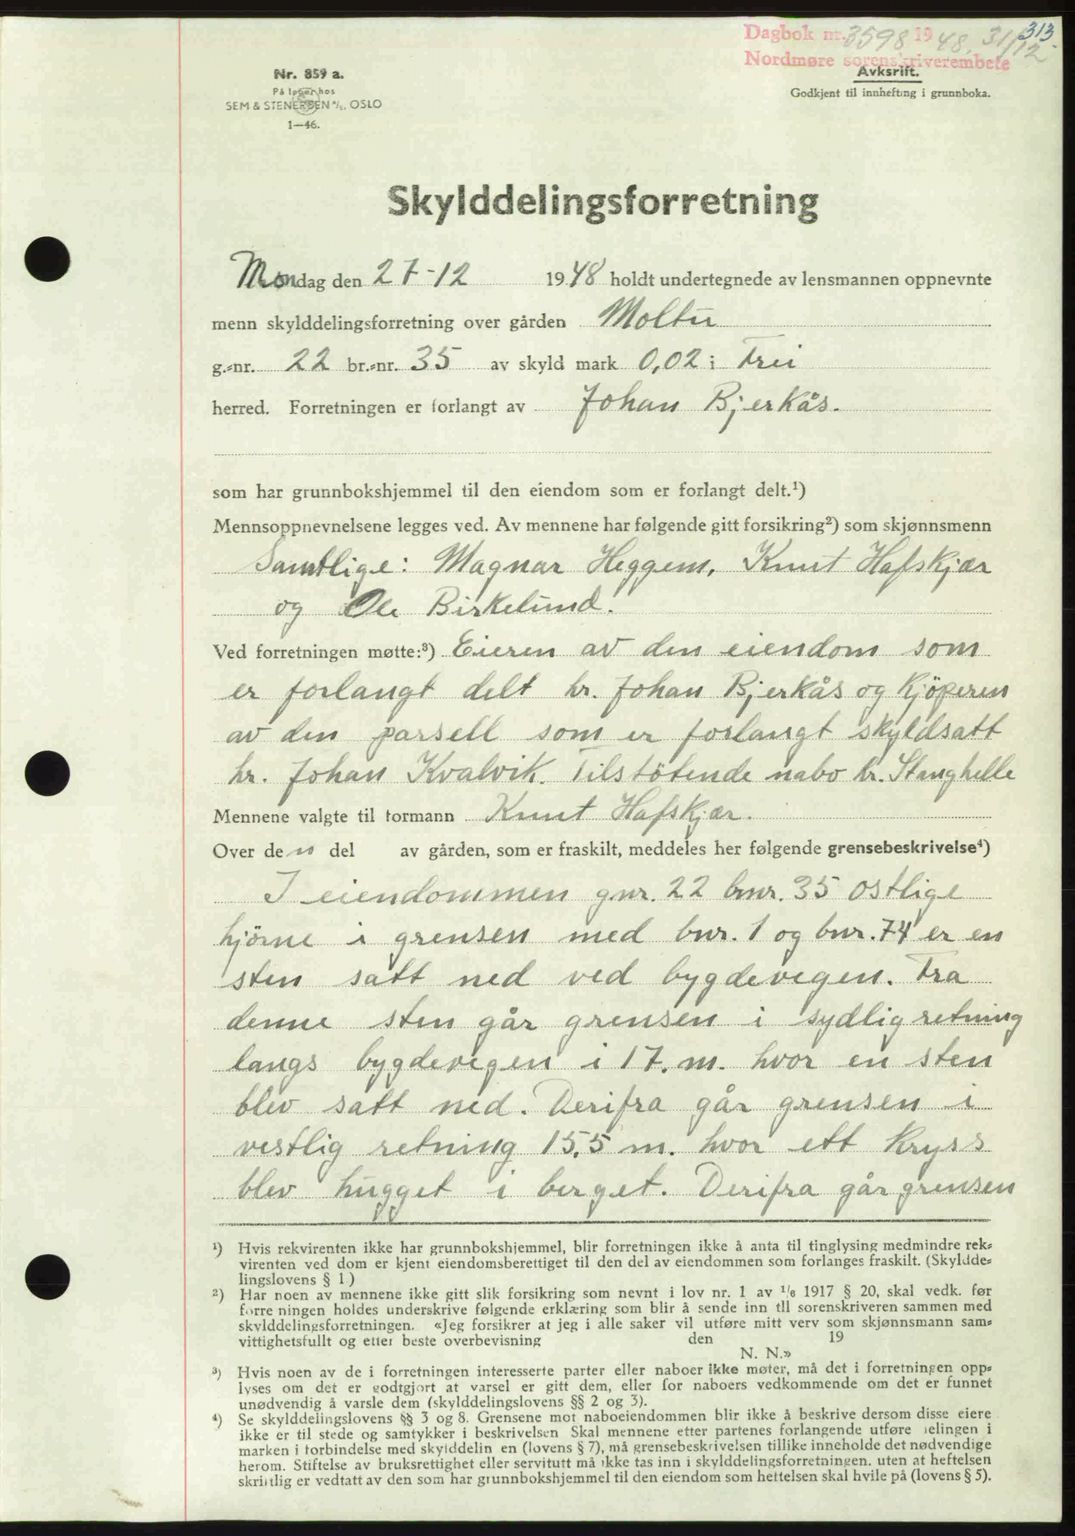 Dagbok nr. 3598 1948, 31/12
313
Nordmøre sorenskriverembete
Avskrift.
Godkjent til innhefting i grunnboka.
Nr. 859 a.
På lager hos
SEM & STENERSEN A/S, OSLO
1—46.
Skylddelingsforretning
Mondag den 27-12 1948 holdt undertegnede av lensmannen oppnevnte
menn skylddelingsforretning over gården Moltu
g.-nr. 22 br.-nr. 35 av skyld mark 0,02 i Frei
herred. Forretningen er forlangt av Johan Bjerkås.
som har grunnbokshjemmel til den eiendom som er forlangt delt.¹)
Mennsoppnevnelsene legges ved. Av mennene har følgende gitt forsikring²) som skjønnsmenn
Samtlige: Magnar Heggem, Knut Hafskjær
og Ole Birkelund.
Ved forretningen møtte:³) Eieren av den eiendom som
er forlangt delt hr. Johan Bjerkås og Kjöperen
av den parsell som er forlangt skyldsatt
hr. Johan Kvalvik. Tilstötende nabo hr. Stanghelle
Mennene valgte til formann Knut Hafskjær.
Over den del av gården, som er fraskilt, meddeles her følgende grensebeskrivelse⁴)
I eiendommen gnr. 22 bnr. 35 östlige
hjörne i grensen med bnr. 1 og bnr. 74 er en
sten satt ned ved bygdevegen. Fra
denne sten går grensen i sydlig retning
langs bygdevegen i 17. m. hvor en sten
blev satt ned. Derifra går grensen i
vestlig retning 15,5 m. hvor ett kryss
blev hugget i berget. Derifra går grensen
¹) Hvis rekvirenten ikke har grunnbokshjemmel, blir forretningen ikke å anta til tinglysing medmindre rek-
virenten ved dom er kjent eiendomsberettiget til den del av eiendommen som forlanges fraskilt. (Skyldde-
lingslovens § 1)
²) Har noen av mennene ikke gitt slik forsikring som nevnt i lov nr. 1 av 1/6 1917 § 20, skal vedk. før
forretningen holdes underskrive følgende erklæring som blir å sende inn til sorenskriveren sammen med
skylddelingsforretningen. «Jeg forsikrer at jeg i alle saker vil utføre mitt verv som skjønnsmann sam-
vittighetsfullt og etter beste overbevisning den 19
N. N.»
³) Hvis noen av de i forretningen interesserte parter eller naboer ikke møter, må det i forretningen opp-
lyses om det er godtgjort at varsel er gitt dem, eller for naboers vedkommende om det er funnet
unødvendig å varsle dem (skylddelingslovens §§ 2 og 3).
⁴) Se skylddelingslovens §§ 3 og 8. Grensene mot naboeiendommen blir ikke å beskrive dersom disse eiere
ikke er til stede og samtykker i beskrivelsen Skal mennene etter partenes forlangende utføre delingen i
marken i forbindelse med skylddelingen (lovens § 7), må grensebeskrivelsen tillike inneholde det nødvendige
herom. Stiftelse av bruksrettighet eller servitutt må ikke tas inn i skylddelingsforretningen, uten at heftelsen
skriftlig er vedtatt av den som har grunnbokshjemmel til den eiendom som heftelsen skal hvile på (lovens § 5).